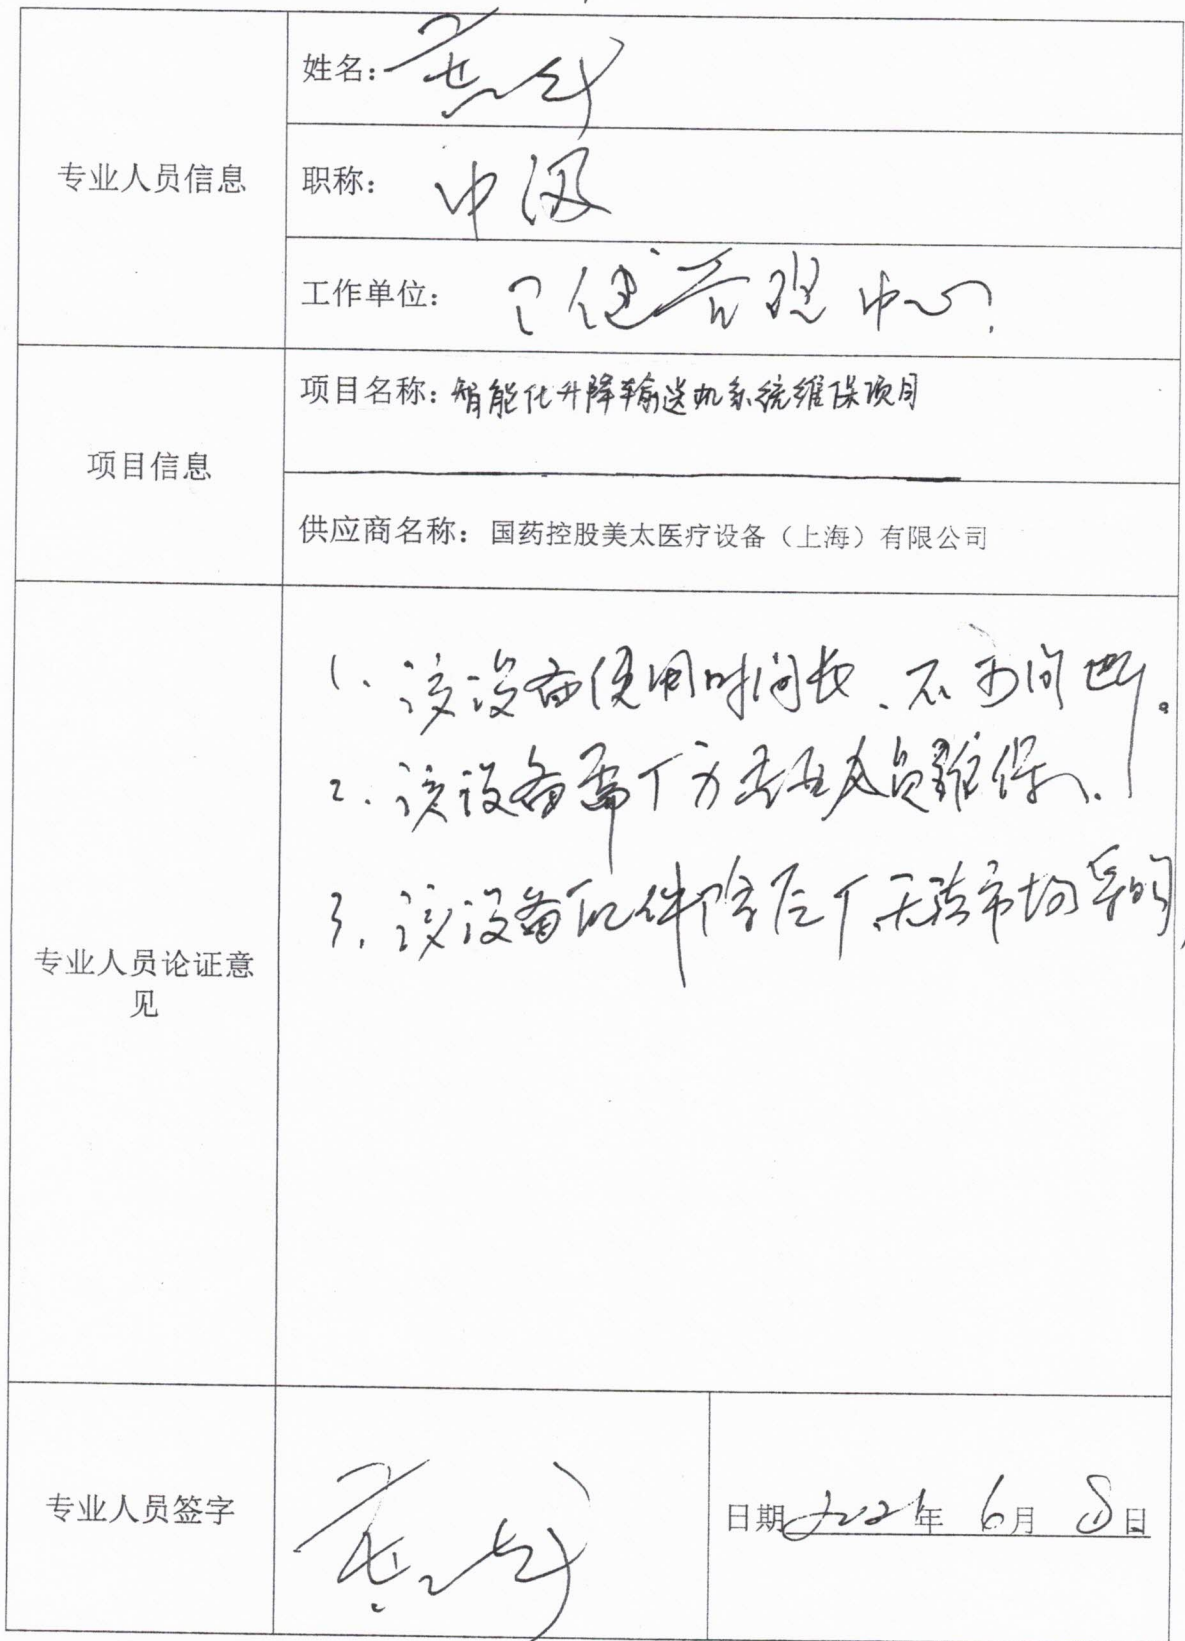 姓名：
专业人员信息
职称： 中级
工作单位： 卫健管理中心
项目信息
项目名称：智能化升降输送机系统维保项目
供应商名称：国药控股美太医疗设备（上海）有限公司
专业人员论证意
见
1. 该设备使用时间长、不可间断。
2. 该设备需厂方专业人员维保。
3. 该设备配件除原厂、无法市场采购
专业人员签字
日期2021年 6月 8日